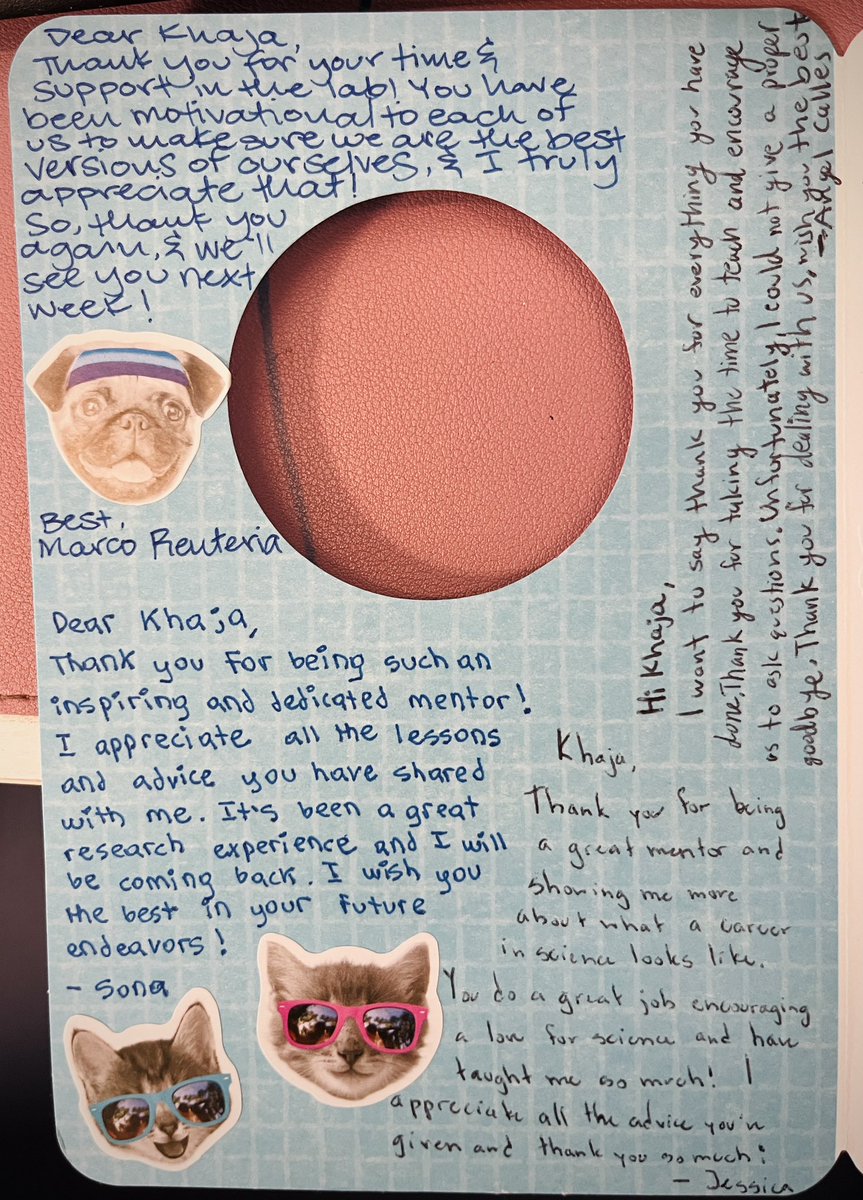 Dear Khaja,
Thank you for your time &
support in the lab! You have
been motivational to each of
us to make sure we are the best
versions of ourselves, & I truly
appreciate that!
So, thank you
again, & we'll
see you next
week!
Best,
Marco Renteria
Dear Khaja,
Thank you for being such an
inspiring and dedicated mentor!
I appreciate all the lessons
and advice you have shared
with me. It's been a great
research experience and I will
be coming back. I wish you
the best in your future
endeavors!
- Sona
Hi Khaja,
I want to say thank you for everything you have
done, Thank you for taking the time to teach and encourage
us to ask questions. Unfortunately, I could not give a proper
goodbye. Thank you for dealing with us, wish you the best
- Angel Calles
Khaja,
Thank you for being
a great mentor and
showing me more
about what a career
in science looks like.
You do a great job encouraging
a love for science and have
taught me so much! I
appreciate all the advice you've
given and thank you so much!
- Jessica